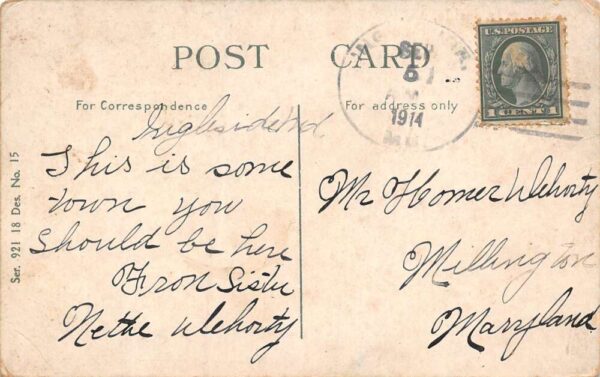 POST CARD
For Correspondence
For address only
U.S. POSTAGE
1 CENT 1
SEP
6
1914
MD.
Ingleside Md.
This is some
town you
should be here
From Sister
Nettie Wehorty
Mr Homer Wehorty
Millington
Maryland
Ser. 921 18 Des. No. 15